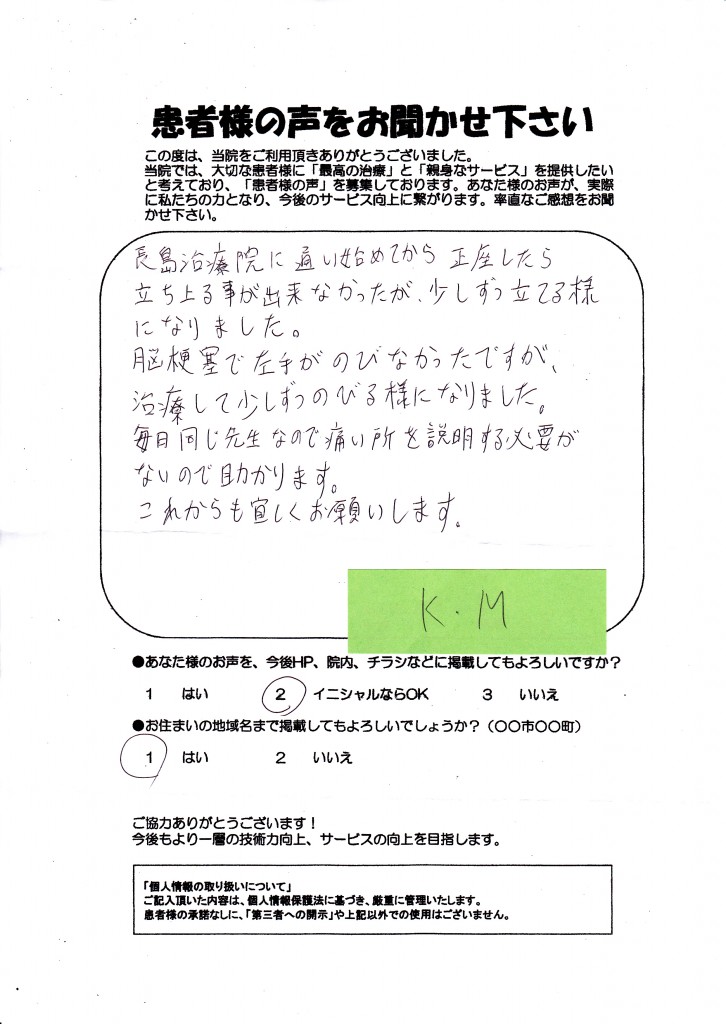 患者様の声をお聞かせ下さい
この度は、当院をご利用頂きありがとうございました。
当院では、大切な患者様に「最高の治療」と「親身なサービス」を提供したい
と考えており、「患者様の声」を募集しております。あなた様のお声が、実際
に私たちの力となり、今後のサービス向上に繋がります。率直なご感想をお聞
かせ下さい。
長島治療院に通い始めてから正座したら
立ち上る事が出来なかったが、少しずつ立てる様
になりました。
脳梗塞で左手がのびなかったですが、
治療して少しずつのびる様になりました。
毎日同じ先生なので痛い所を説明する必要が
ないので助かります。
これからも宜しくお願いします。
K.M
●あなた様のお声を、今後HP、院内、チラシなどに掲載してもよろしいですか？
1 はい 2 イニシャルならOK 3 いいえ
●お住まいの地域名まで掲載してもよろしいでしょうか？（〇〇市〇〇町）
1 はい 2 いいえ
ご協力ありがとうございます！
今後もより一層の技術力向上、サービスの向上を目指します。
「個人情報の取り扱いについて」
ご記入頂いた内容は、個人情報保護法に基づき、厳重に管理いたします。
患者様の承諾なしに、「第三者への開示」や上記以外での使用はございません。